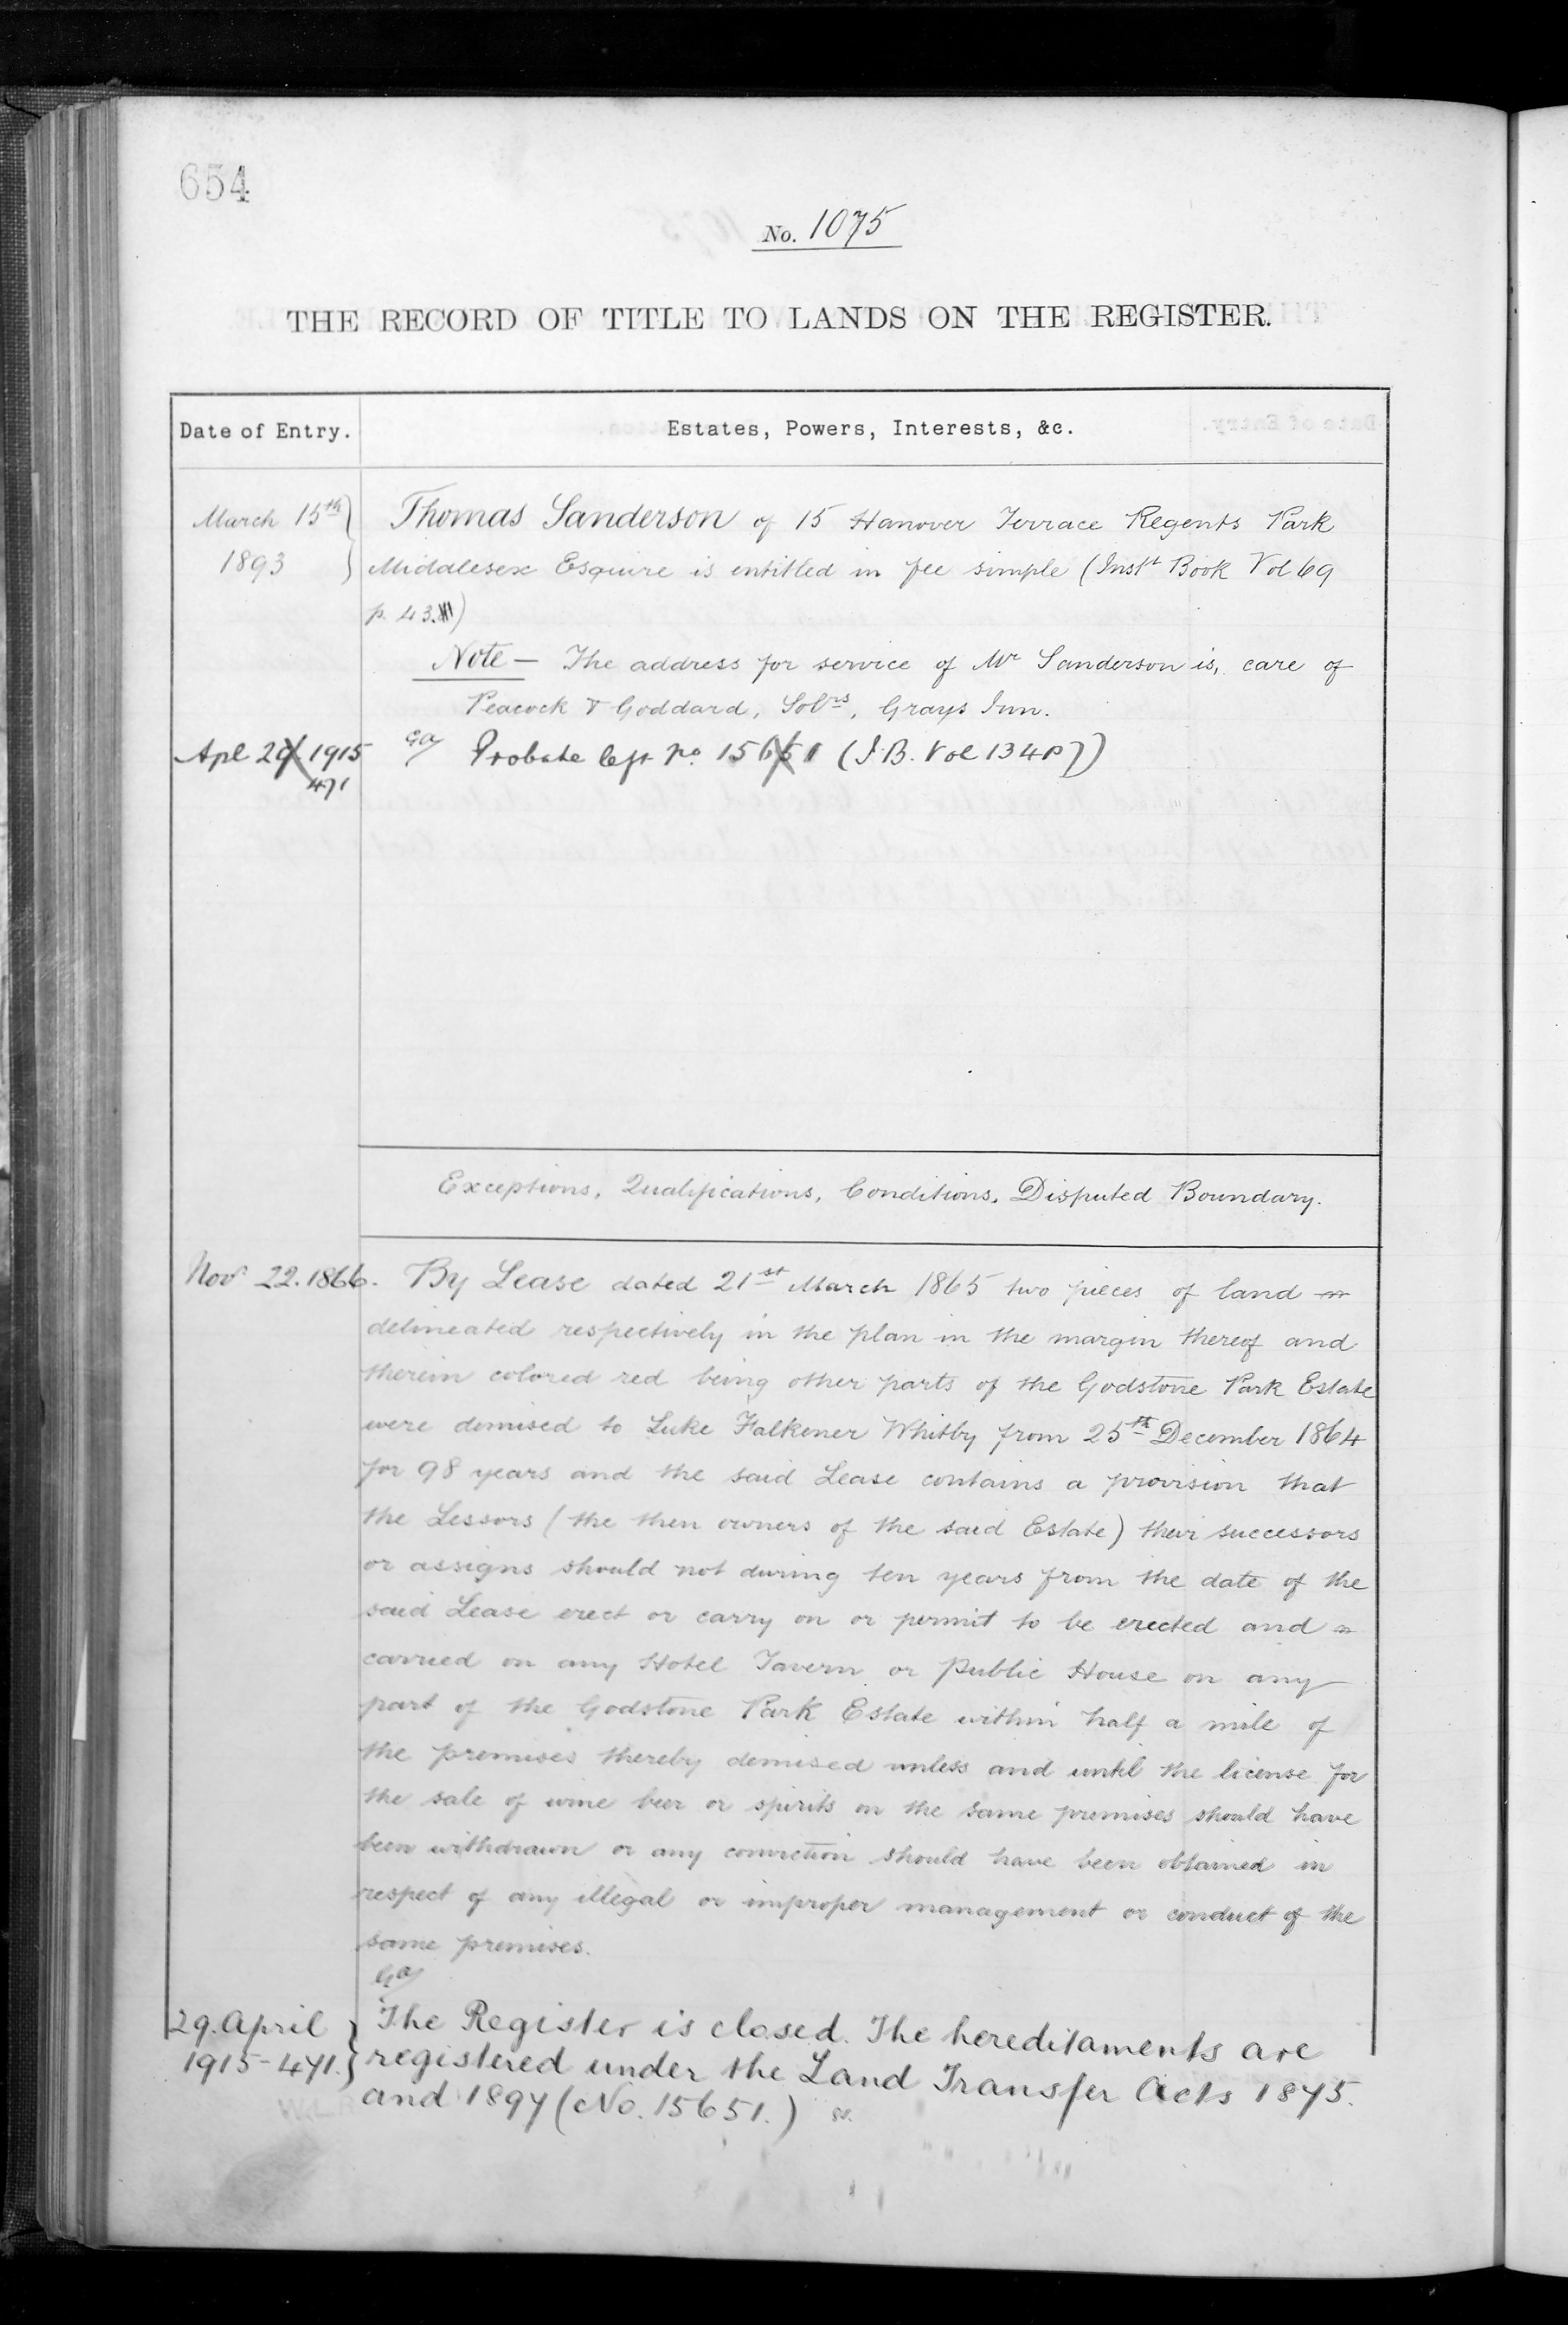 654
No. 1075
THE RECORD OF TITLE TO LANDS ON THE REGISTER.
Date of Entry.
Estates, Powers, Interests, &c.
March 15th 1893
Thomas Sanderson of 15 Hanover Terrace Regents Park
Middlesex Esquire is entitled in fee simple (Instt Book Vol 69
p. 43.)
Note — The address for service of Mr Sanderson is, care of
Peacock & Goddard, Solrs, Grays Inn.
Apl 29. 1915
471
Probate left No. 15651 (I.B. Vol 134 p 7)
Exceptions, Qualifications, Conditions, Disputed Boundary.
Nov 22. 1866.
By Lease dated 21st March 1865 two pieces of land
delineated respectively in the plan in the margin thereof and
therein colored red being other parts of the Godstone Park Estate
were demised to Luke Falkener Whitby from 25th December 1864
for 98 years and the said Lease contains a provision that
the Lessors (the then owners of the said Estate) their successors
or assigns should not during ten years from the date of the
said Lease erect or carry on or permit to be erected and
carried on any Hotel Tavern or Public House on any
part of the Godstone Park Estate within half a mile of
the premises thereby demised unless and until the license for
the sale of wine beer or spirits on the same premises should have
been withdrawn or any conviction should have been obtained in
respect of any illegal or improper management or conduct of the
same premises.
29. April
1915-471.
The Register is closed. The hereditaments are
registered under the Land Transfer Acts 1875.
and 1897 (No. 15651.)